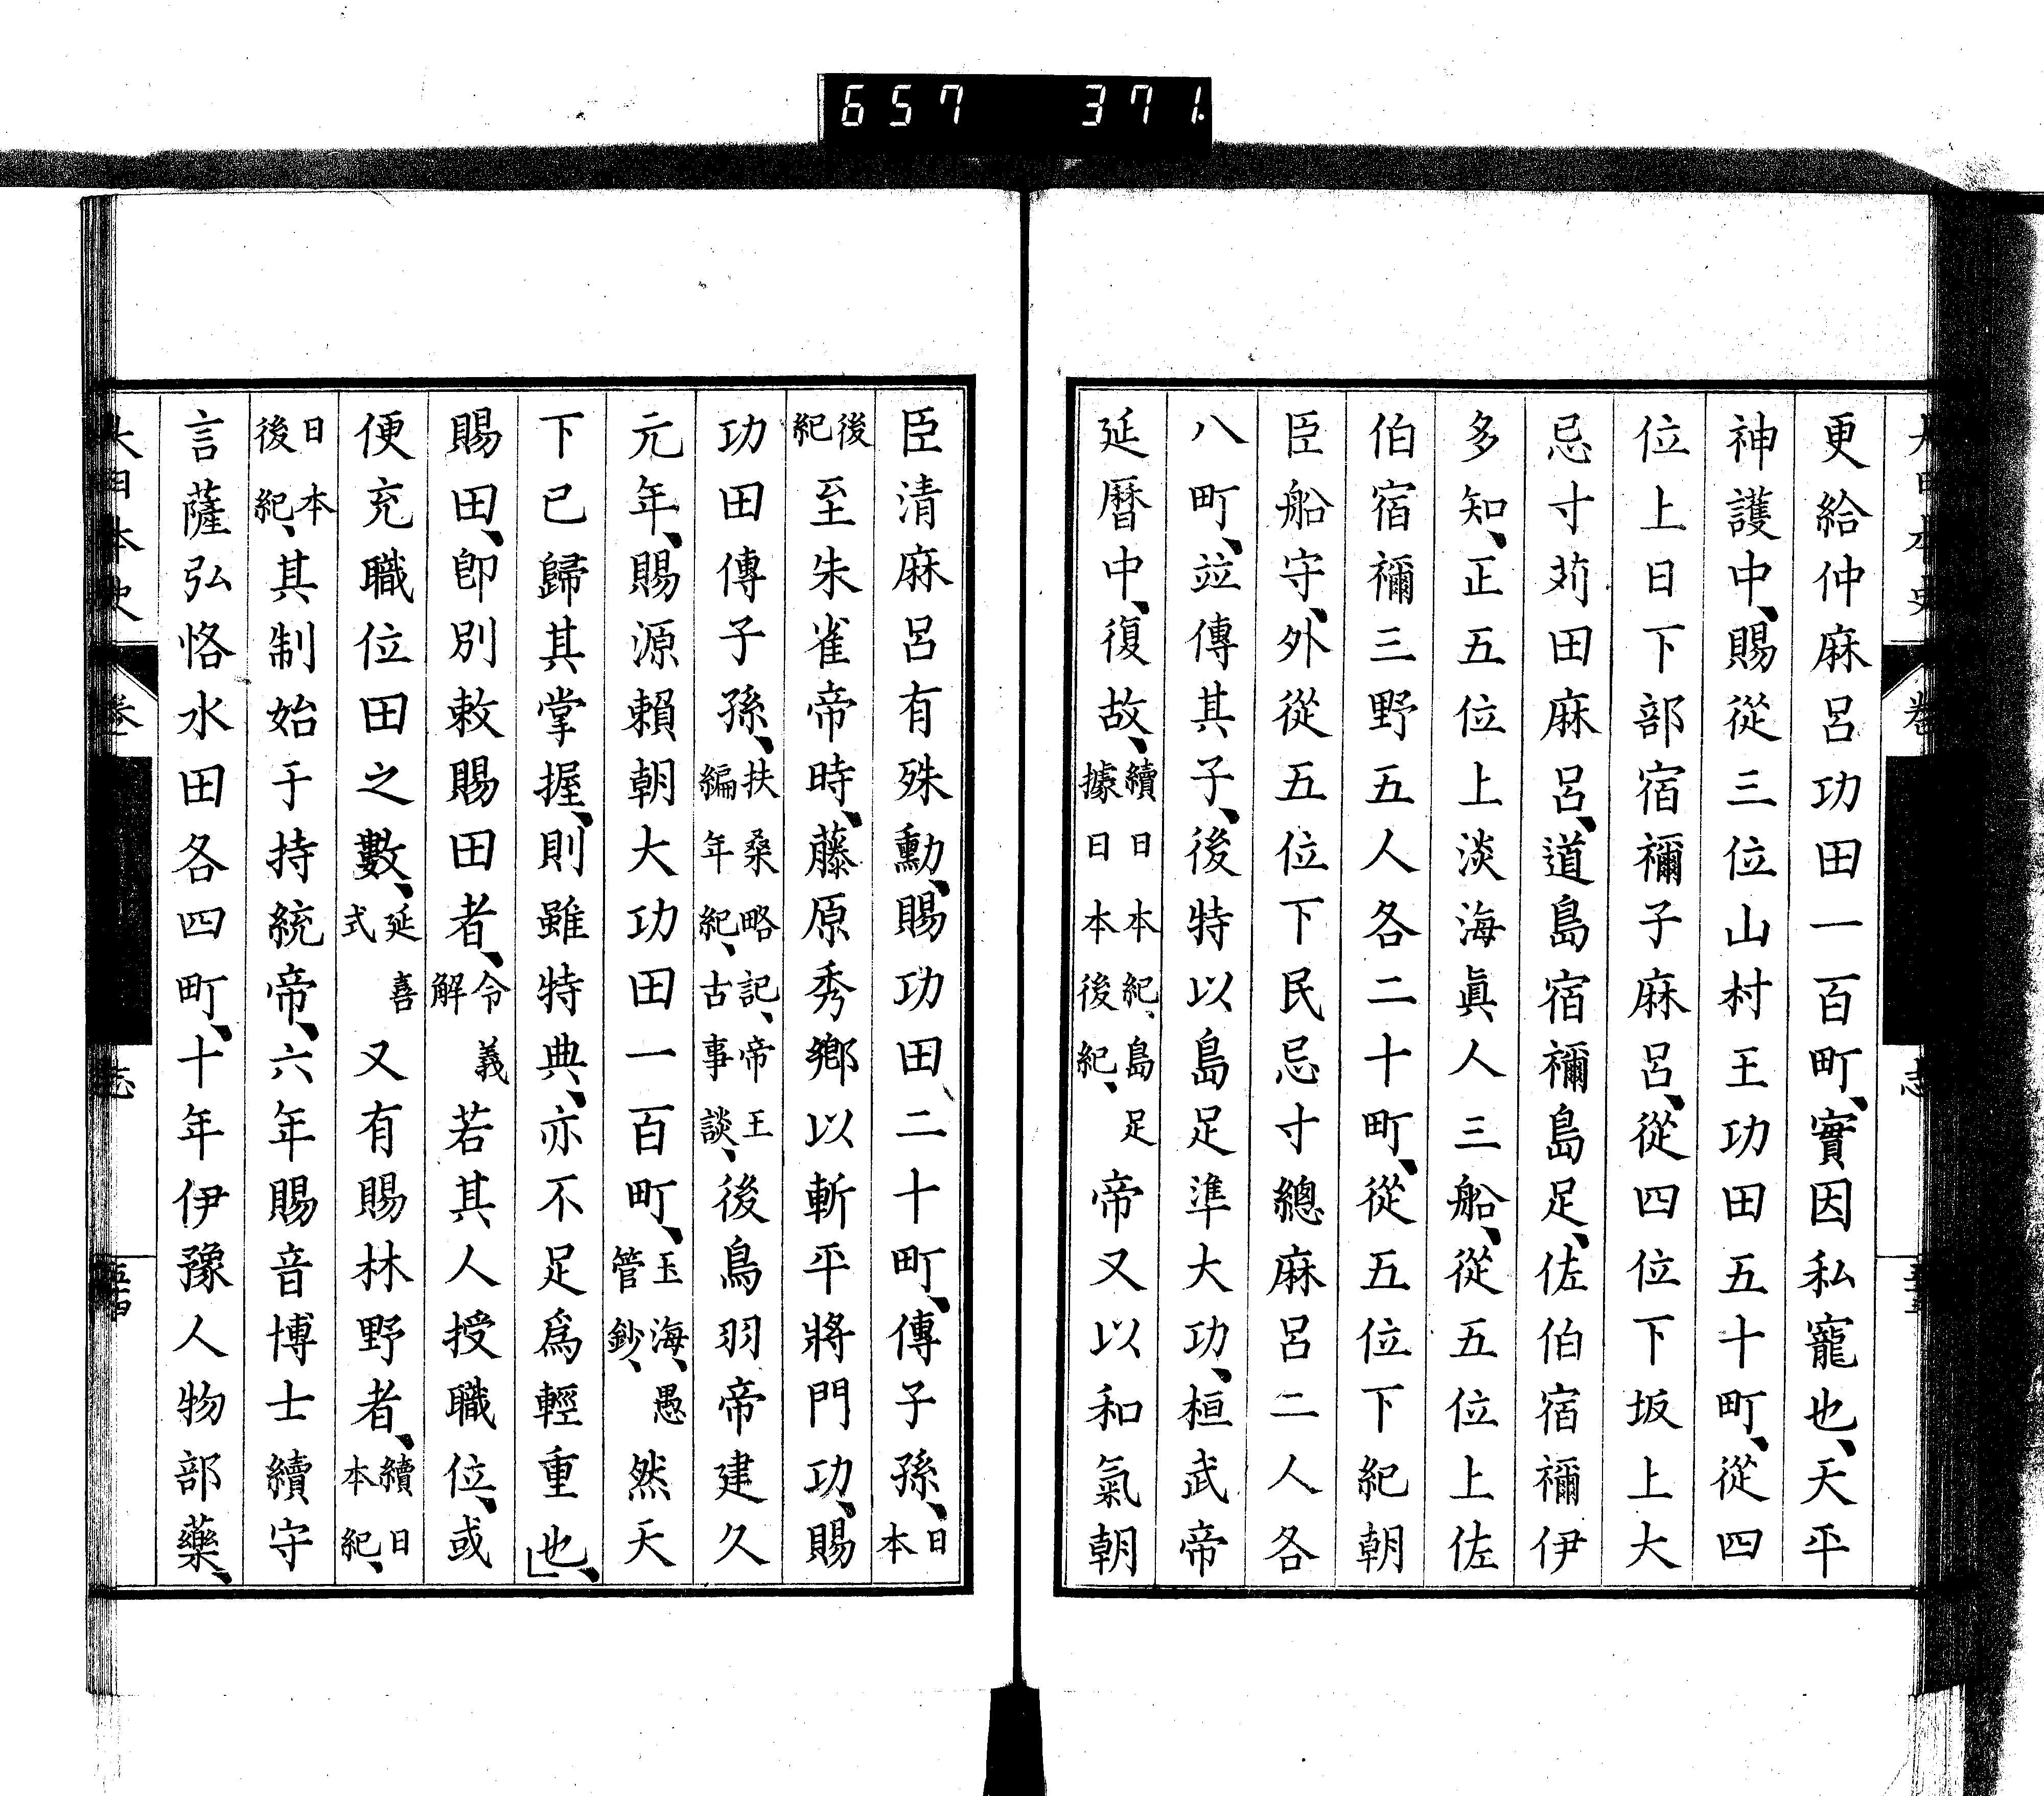 657 371
更給仲麻呂功田一百町、實因私寵也、天平
神護中、賜從三位山村王功田五十町、從四
位上日下部宿禰子麻呂、從四位下坂上大
忌寸苅田麻呂、道島宿禰島足、佐伯宿禰伊
多知、正五位上淡海眞人三船、從五位上佐
伯宿禰三野五人各二十町、從五位下紀朝
臣船守、外從五位下民忌寸總麻呂二人各
八町、竝傳其子、後特以島足準大功、桓武帝
延曆中、復故、續日本紀、島足據日本後紀、帝又以和氣朝
臣清麻呂有殊勳、賜功田二十町、傳子孫、日本
後紀至朱雀帝時、藤原秀鄕以斬平將門功、賜
功田傳子孫、扶桑略記、帝王編年紀、古事談、後鳥羽帝建久
元年、賜源賴朝大功田一百町、玉海、愚管鈔、然天
下已歸其掌握、則雖特典、亦不足爲輕重也、」
賜田、卽別敕賜田者、令義解若其人授職位、或
便充職位田之數、延喜式又有賜林野者、續日本紀、
日本後紀、其制始于持統帝、六年賜音博士續守
言薩弘恪水田各四町、十年伊豫人物部藥、
大日本史 卷 志